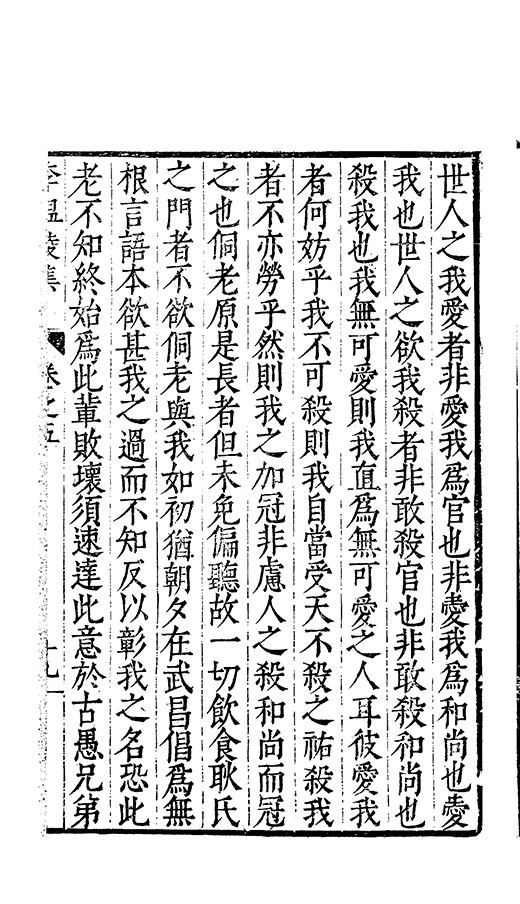 世人之我愛者非愛我爲官也非愛我爲和尚也愛
我也世人之欲我殺者非敢殺官也非敢殺和尚也
殺我也我無可愛則我直爲無可愛之人耳彼愛我
者何妨乎我不可殺則我自當受天不殺之祐殺我
者不亦勞乎然則我之加冠非慮人之殺和尚而冠
之也侗老原是長者但未免偏聽故一切飲食耿氏
之門者不欲侗老與我如初猶朝夕在武昌倡爲無
根言語本欲甚我之過而不知反以彰我之名恐此
老不知終始爲此輩敗壞須速達此意於古愚兄弟
李温陵集 卷之五 十九